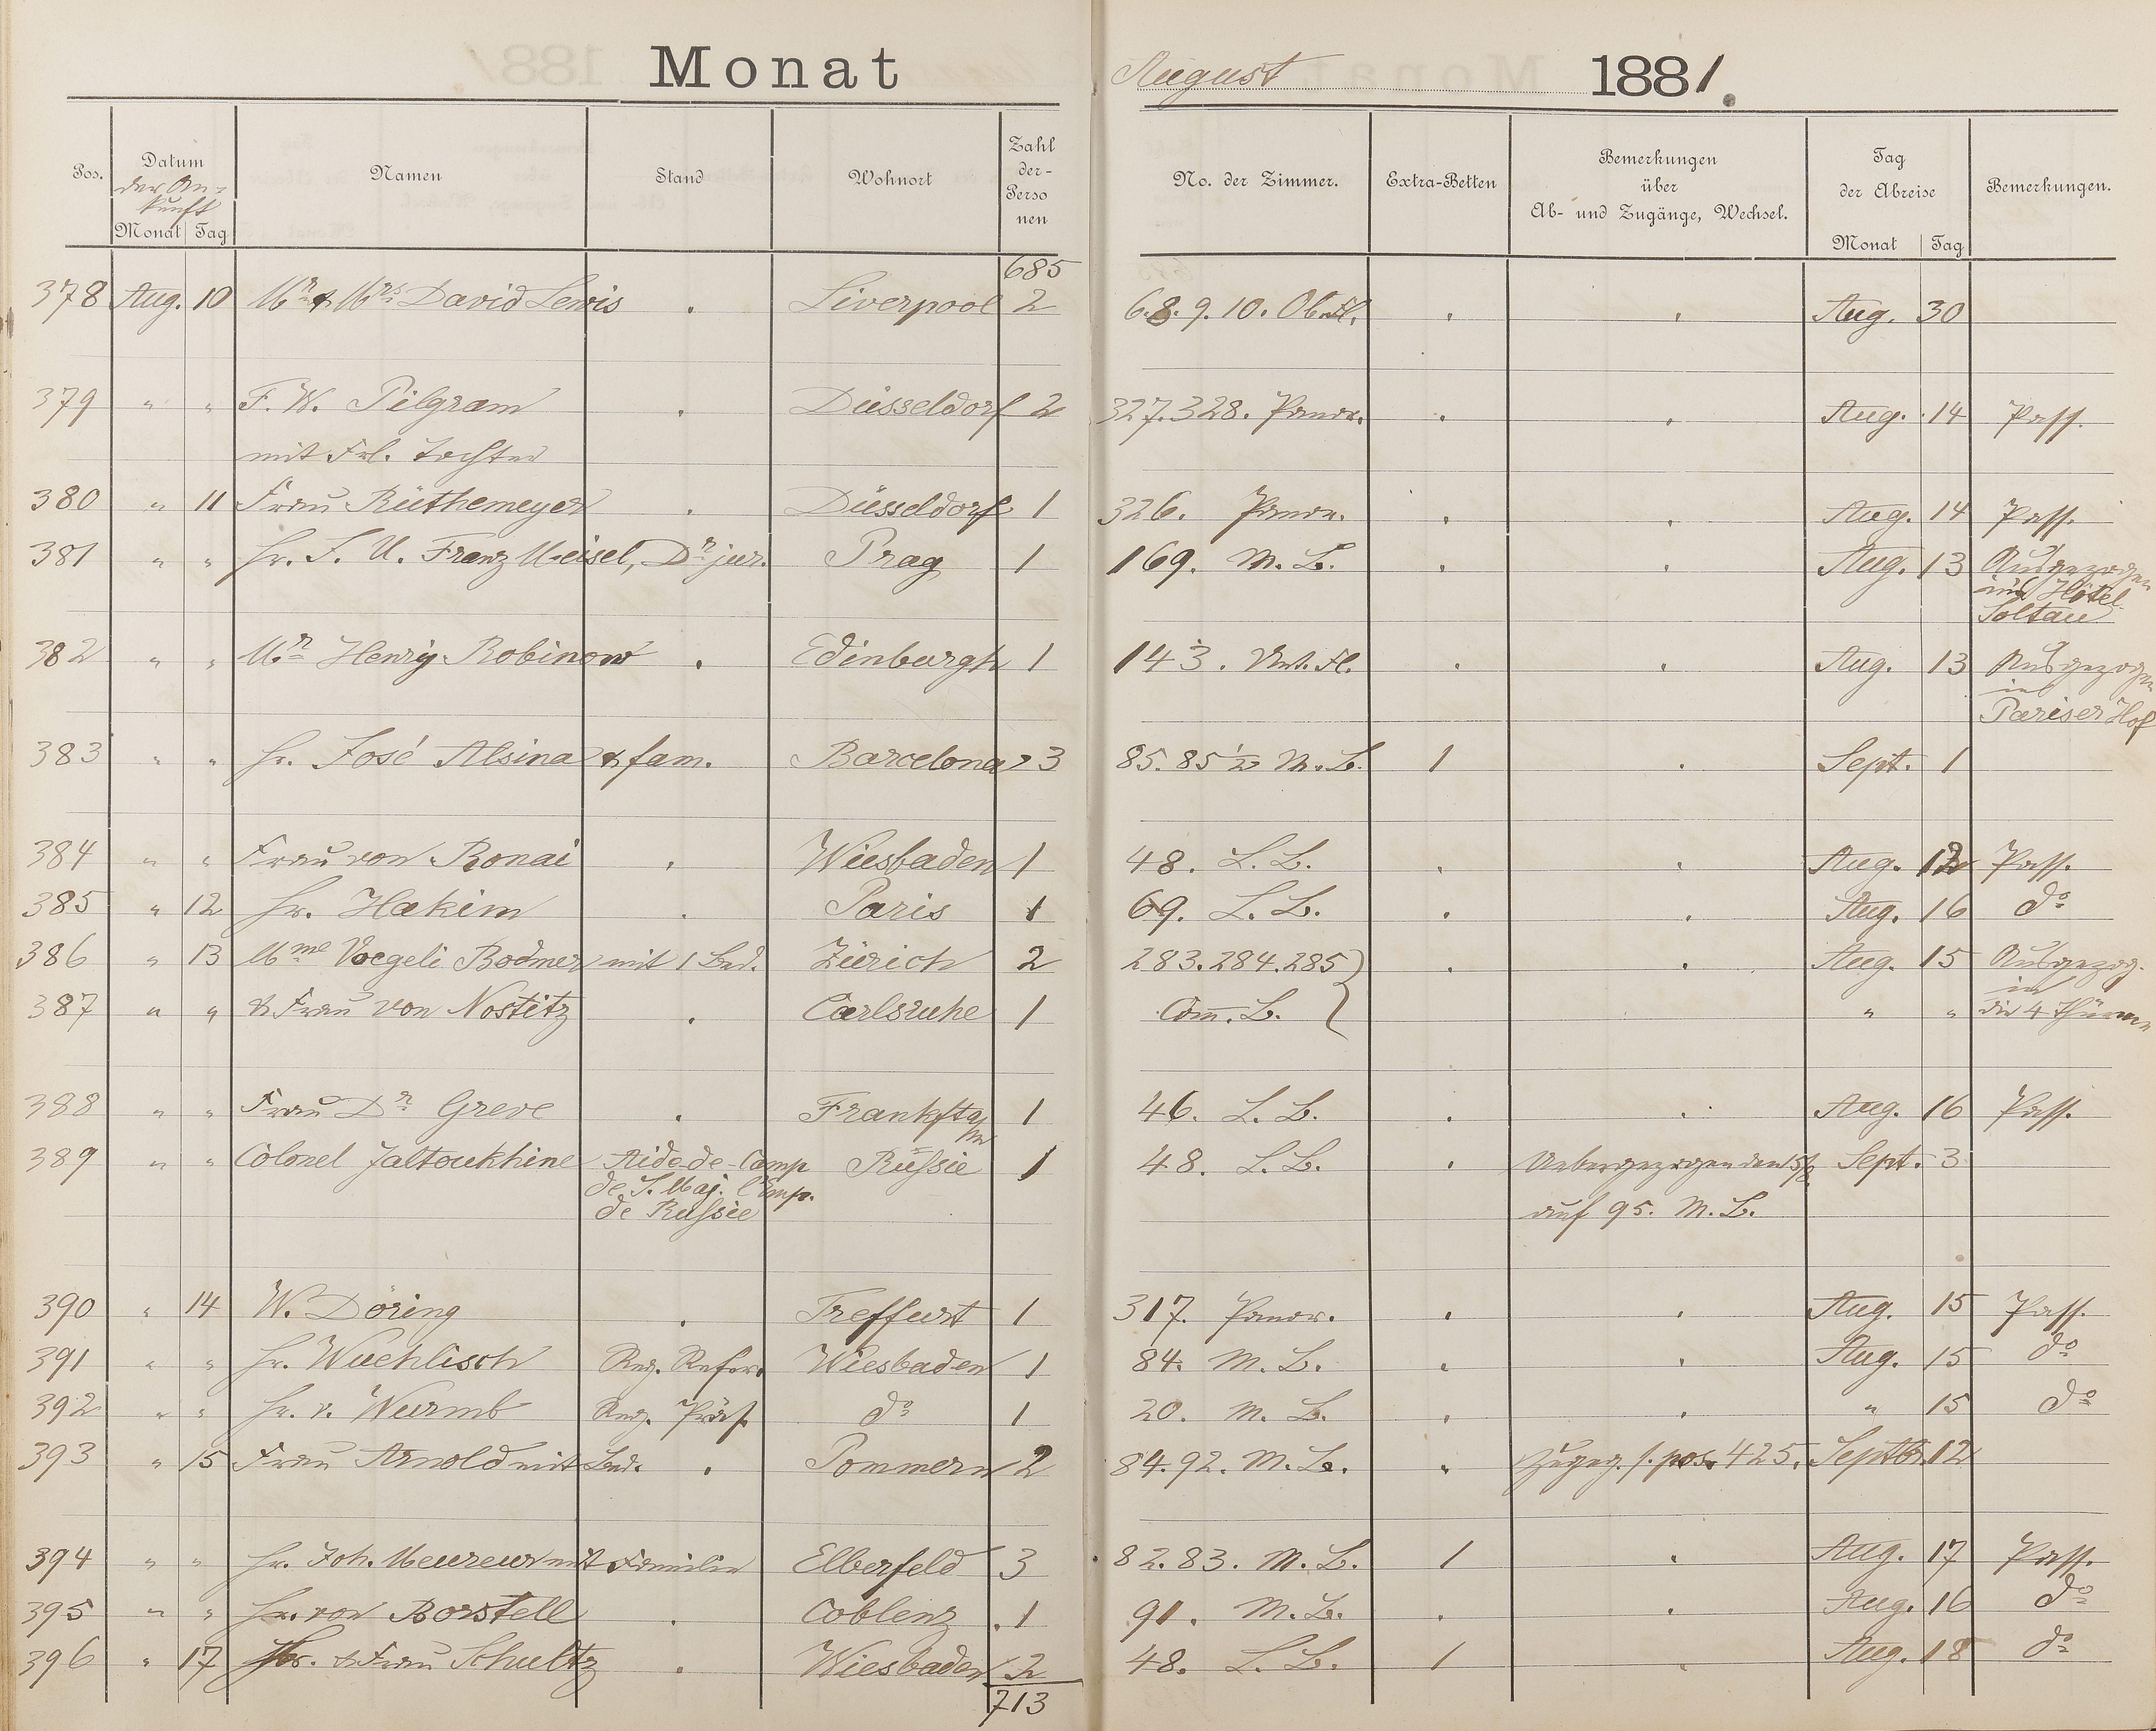 Monat August 1881.
Pos. Datum der An- Namen Stand Wohnort Zahl No. der Zimmer. Extra-Betten Bemerkungen Tag Bemerkungen.
kunft der- über der Abreise
Monat Tag Perso Ab- und Zugänge, Wechsel. Monat Tag
nen
685
378 Aug. 10 Mr & Mrs David Lewis . Liverpool 2 6.8.9.10. Ob.Fl. . . Aug. 30
379 " " F. W. Pilgram . Düsseldorf 2 327.328. Panor. . . Aug. 14 Pass.
mit Frl. Tochter
380 " 11 Frau Rüthemeyer . Düsseldorf 1 326. Panor. . . Aug. 14 Pass.
381 " " Hr. S. U. Franz Meisel, Dr jur. Prag 1 169. M. B. . . Aug. 13 Ausgezogen
ins Hôtel
Soltau
382 " " Mr Henry Robinow . Edinburgh 1 143. Unt. Fl. . . Aug. 13 Ausgezogen
in
Pariser Hof
383 " " Hr. José Alsina & fam. Barcelona 3 85. 85 1/2 M. B. 1 . Sept. 1
384 " " Frau von Ronai . Wiesbaden 1 48. L. B. . . Aug. 12 Pass.
385 " 12 Hr. Hakim . Paris 1 69. L. B. . . Aug. 16 do
386 " 13 Mme Voegeli Bodmer mit 1 Bed. Zürich 2 283.284.285 } . . Aug. 15 Ausgezog.
in
387 " " & Frau von Nostitz . Carlsruhe 1 Com. B. " " die 4 Thürme
388 " " Frau Dr Greve . Frankft a/m 1 46. L. B. . . Aug. 16 Pass.
389 " " Colonel Jaltoukhine Aide-de-Camp Russie 1 48. L. B. . Uebergezogen den 15/8 Sept. 3
de S. Maj. l'Emp.
de Russie auf 95. M. B.
390 " 14 W. Döring . Treffurt 1 317. Panor. . . Aug. 15 Pass.
391 " " Hr. Wuehlisch Reg. Refer. Wiesbaden 1 84. M. B. . . Aug. 15 do
392 " " Hr. v. Wurmb Reg. Präs. do 1 20. M. B. . . " 15 do
393 " 15 Frau Arnold mit Bed. . Pommern 2 84.92. M. B. " Zugeg. s. pos. 425. Septbr. 12
394 " " Hr. Joh. Meureur mit Familie Elberfeld 3 82.83. M. B. 1 . Aug. 17 Pass.
395 " " Hr. von Borstell . Coblenz . 1 91. M. B. . . Aug. 16 do
396 " 17 Hr. & Frau Schultz . Wiesbaden 2 48. L. B. 1 . Aug. 18 do
713